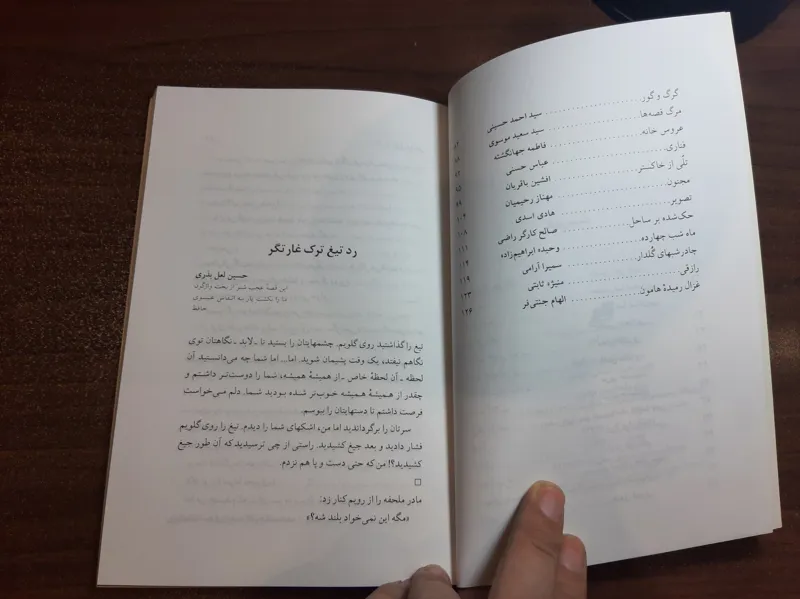 گرگ و گور . . . . . . . . . . . . . . . سید احمد حسینی
مرگ قصه‌ها . . . . . . . . . . . . . . . سید سعید موسوی ۸۲
عروس خانه . . . . . . . . . . . . . . . فاطمه جهانگشته
قناری . . . . . . . . . . . . . . . عباس حسنی ۹۲
تلّی از خاکستر . . . . . . . . . . . . . . . افشین باقریان ۹۵
مجنون . . . . . . . . . . . . . . . مهناز رحیمیان ۹۹
تصویر . . . . . . . . . . . . . . . هادی اسدی ۱۰۴
حک‌شده بر ساحل . . . . . . . . . . . . . . . صالح کارگر راضی ۱۰۸
ماه شب چهارده . . . . . . . . . . . . . . . وحیده ابراهیم‌زاده ۱۱۱
چادرشبهای گُلدار . . . . . . . . . . . . . . . سمیرا آرامی ۱۱۴
رازقی . . . . . . . . . . . . . . . منیژه ثابتی ۱۱۹
غزال رمیدهٔ هامون . . . . . . . . . . . . . . . الهام جنتی‌فر ۱۲۳
۱۲۶
رد تیغ ترک غارتگر
حسین لعل بذری
این قصهٔ عجب شنو از بخت واژگون
ما را بکشت یار به انفاس عیسوی
حافظ
تیغ را گذاشتید روی گلویم. چشمهایتان را بستید تا ـ لابد ـ نگاهتان توی
نگاهم نیفتد، یک وقت پشیمان شوید. اما... اما شما چه می‌دانستید آن
لحظه ـ آن لحظهٔ خاص ـ از همیشهٔ همیشه، شما را دوست‌تر داشتم و
چقدر از همیشهٔ همیشه خوب‌تر شده بودید شما. دلم می‌خواست
فرصت داشتم تا دستهایتان را ببوسم.
سرتان را برگرداندید اما من، اشکهای شما را دیدم. تیغ را روی گلویم
فشار دادید و بعد جیغ کشیدید. راستی از چی ترسیدید که آن طور جیغ
کشیدید؟! من که حتی دست و پا هم نزدم.
□
مادر ملحفه را از رویم کنار زد:
«مگه این نمی‌خواد بلند شه؟»